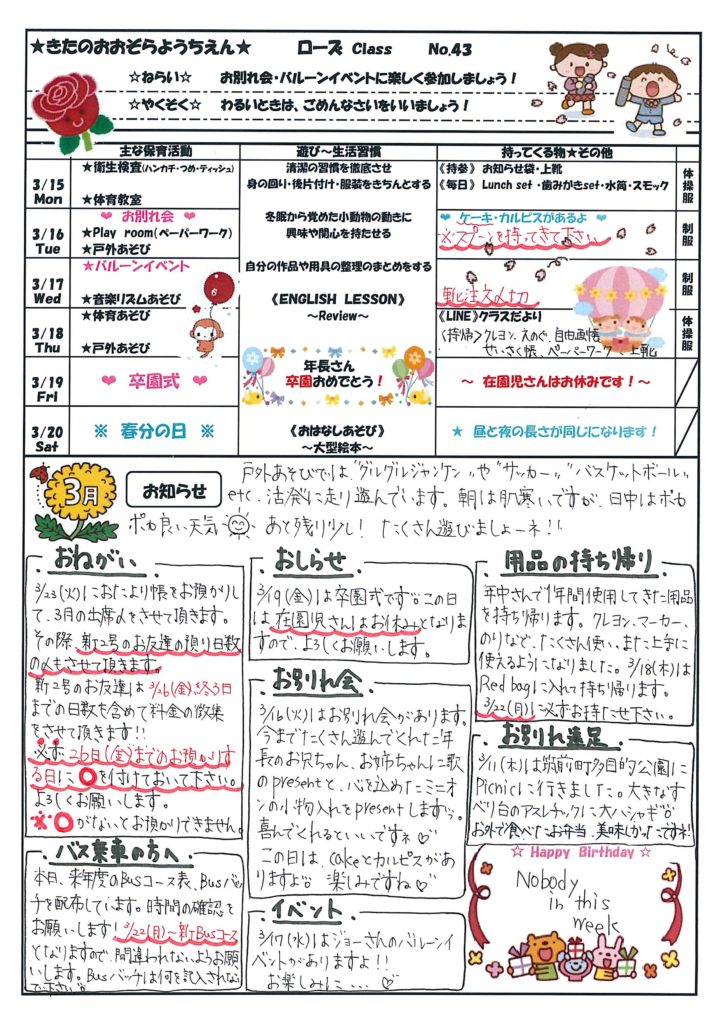 ★きたのおおぞらようちえん★ ローズ Class No.43
☆ねらい☆ お別れ会・バルーンイベントに楽しく参加しましょう！
☆やくそく☆ わるいときは、ごめんなさいをいいましょう！
主な保育活動 遊び～生活習慣 持ってくる物★その他
3/15 Mon
★衛生検査(ハンカチ・つめ・ティッシュ)
★体育教室
清潔の習慣を徹底させ
身の回り・後片付け・服装をきちんとする
《持参》 お知らせ袋・上靴
《毎日》 Lunch set ・歯みがきset・水筒・スモック
体操服
3/16 Tue
❤ お別れ会 ❤
★Play room(ペーパーワーク)
★戸外あそび
冬眠から覚めた小動物の動きに
興味や関心を持たせる
❤ ケーキ・カルピスがあるよ ❤
※スプーンを持ってきて下さい
制服
3/17 Wed
★バルーンイベント
★音楽リズムあそび
自分の作品や用具の整理のまとめをする
《ENGLISH LESSON》
～Review～
靴注文〆切
制服
3/18 Thu
★体育あそび
★戸外あそび
《LINE》クラスだより
〈持帰〉クレヨン、えのぐ、自由画帳
せいさく帳、ペーパーワーク、上靴
体操服
3/19 Fri
❤ 卒園式 ❤
年長さん
卒園おめでとう！
～ 在園児さんはお休みです！～
3/20 Sat
※ 春分の日 ※
《おはなしあそび》
～大型絵本～
★ 昼と夜の長さが同じになります！
3月 お知らせ
戸外あそびでは、"グルグルジャンケン"や"サッカー""バスケットボール"
etc、活発に走り遊んでいます。朝は肌寒いですが、日中はポカ
ポカ良い天気 あと残り少し！ たくさん遊びましょーネ！！
おねがい
3/23(火)におたより帳をお預かりし
て、3月の出席〆をさせて頂きます。
その際、新2号のお友達の預り日数
の〆もさせて頂きます。
新2号のお友達は3/26(金)終了日
までの日数も含めて料金の徴集
をさせて頂きます!!
必ず26日(金)までのお預かりす
る日に〇を付けておいて下さい。
よろしくお願いします。
※〇がないとお預かりできません。
バス乗車の方へ
本日、来年度のBusコース表、Busバッ
チを配布しています。時間の確認を
お願いします！3/22(月)～新Busコース
となりますので、間違われないようお願
いします。Busバッチは何も記入されない
で下さい。
おしらせ
3/19(金)は卒園式です。この日
は、在園児さんはお休みとなりま
すので、よろしくお願いします。
お別れ会
3/16(火)はお別れ会があります。
今までたくさん遊んでくれた年
長のお兄ちゃん、お姉ちゃんに歌
のpresentと、心を込めたミニオ
ンの小物入れをpresentします。
喜んでくれるといいですネ♡
この日は、cakeとカルピスがあ
りますよ。楽しみですね♡
イベント
3/17(水)はジョーさんのバルーンイ
ベントがありますよ！！
お楽しみに・・・♡
用品の持ち帰り
年中さんで1年間使用してきた用品
を持ち帰ります。クレヨン、マーカー、
のりなど、たくさん使い、また上手に
使えるようになりました。3/18(木)は
Red bagに入れて持ち帰ります。
3/22(月)に必ずお持たせ下さい。
お別れ遠足
3/11(木)は筑前町多目的公園に
Picnicに行きました。大きなす
べり台のアスレチックに大ハシャギ
お外で食べたお弁当、美味しかったですネ！
☆ Happy Birthday ☆
Nobody
in this
week